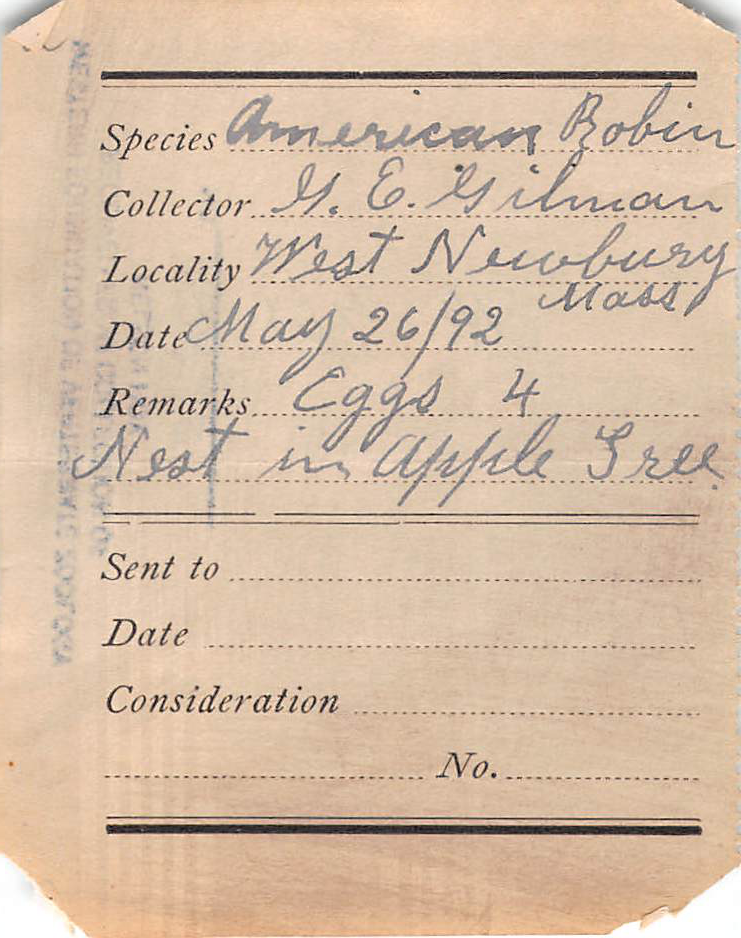 Species American Robin
Collector G. E. Gilman
Locality West Newbury
Mass
Date May 26/92
Remarks Eggs 4
Nest in Apple Tree.
Sent to
Date
Consideration
No.
WESTERN FOUNDATION OF VERTEBRATE ZOOLOGY